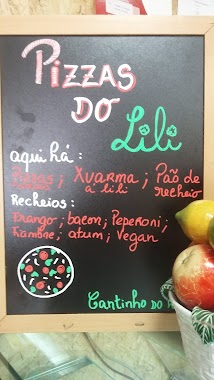 Pizzas
do
Lili
aqui há:
Pizzas; Xvarma; Pão de
à lili recheio
Recheios:
Frango; bacon; Peperoni;
fiambre; atum; Vegan
Cantinho do